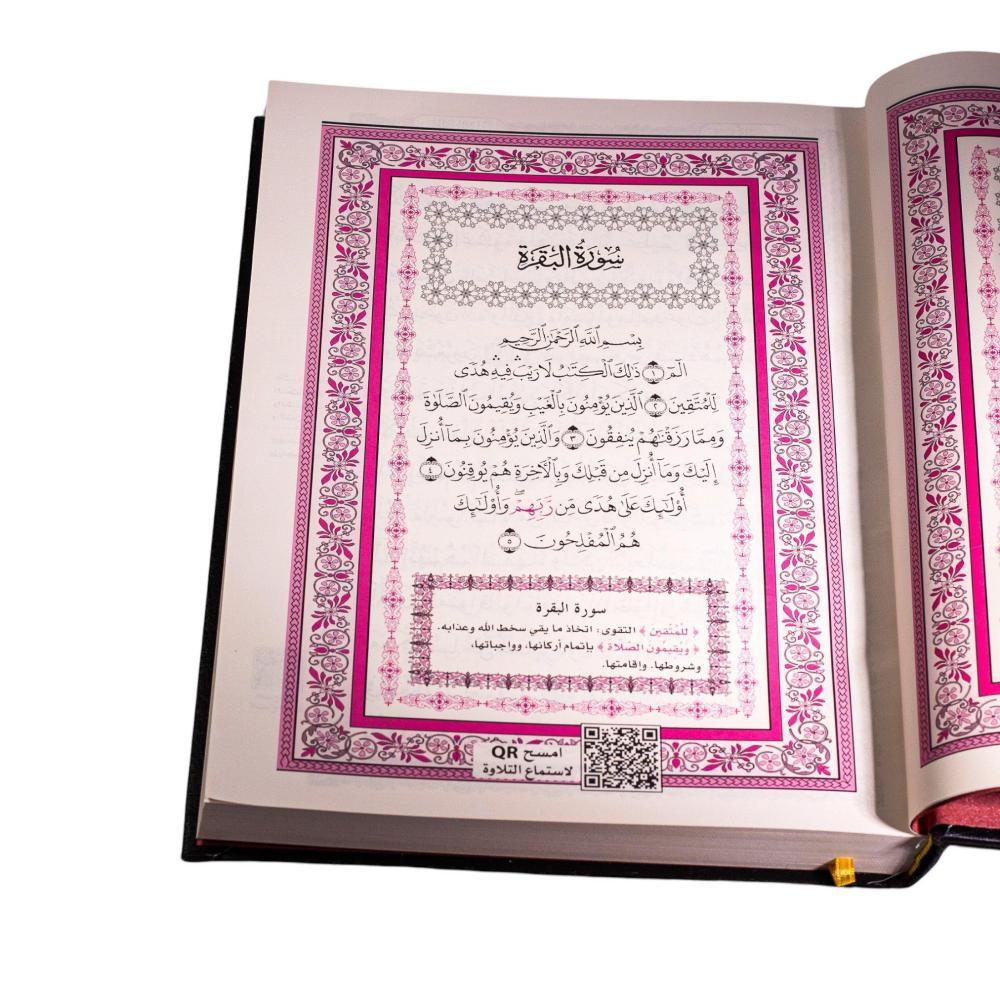 سُورَةُ البَقَرَةِ
بِسۡمِ ٱللَّهِ ٱلرَّحۡمَٰنِ ٱلرَّحِيمِ
الٓمٓ ١ ذَٰلِكَ ٱلۡكِتَٰبُ لَا رَيۡبَۛ فِيهِۛ هُدٗى
لِّلۡمُتَّقِينَ ٢ ٱلَّذِينَ يُؤۡمِنُونَ بِٱلۡغَيۡبِ وَيُقِيمُونَ ٱلصَّلَوٰةَ
وَمِمَّا رَزَقۡنَٰهُمۡ يُنفِقُونَ ٣ وَٱلَّذِينَ يُؤۡمِنُونَ بِمَآ أُنزِلَ
إِلَيۡكَ وَمَآ أُنزِلَ مِن قَبۡلِكَ وَبِٱلۡأٓخِرَةِ هُمۡ يُوقِنُونَ ٤
أُوْلَٰٓئِكَ عَلَىٰ هُدٗى مِّن رَّبِّهِمۡۖ وَأُوْلَٰٓئِكَ
هُمُ ٱلۡمُفۡلِحُونَ ٥
سورة البقرة
﴿ للمُتَّقين ﴾ التقوى: اتخاذ ما يقي سخط الله وعذابه.
﴿ ويقيمون الصلاة ﴾ بإتمام أركانها، وواجباتها،
وشروطها. وإقامتها.
امسح QR
لاستماع التلاوة